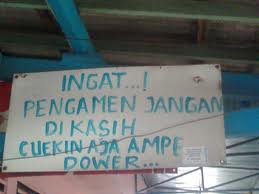 INGAT...!
PENGAMEN JANGAN
DI KASIH
CUEKIN AJA AMPE
DOWER...